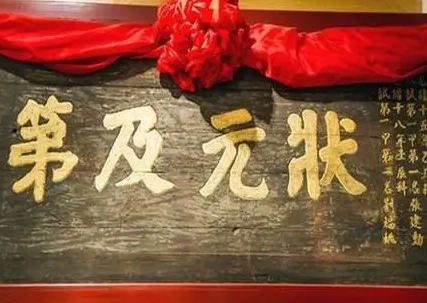 試第一甲第一名張建勳
緒十八年壬辰科
試第一甲第一名劉福姚
狀元及第